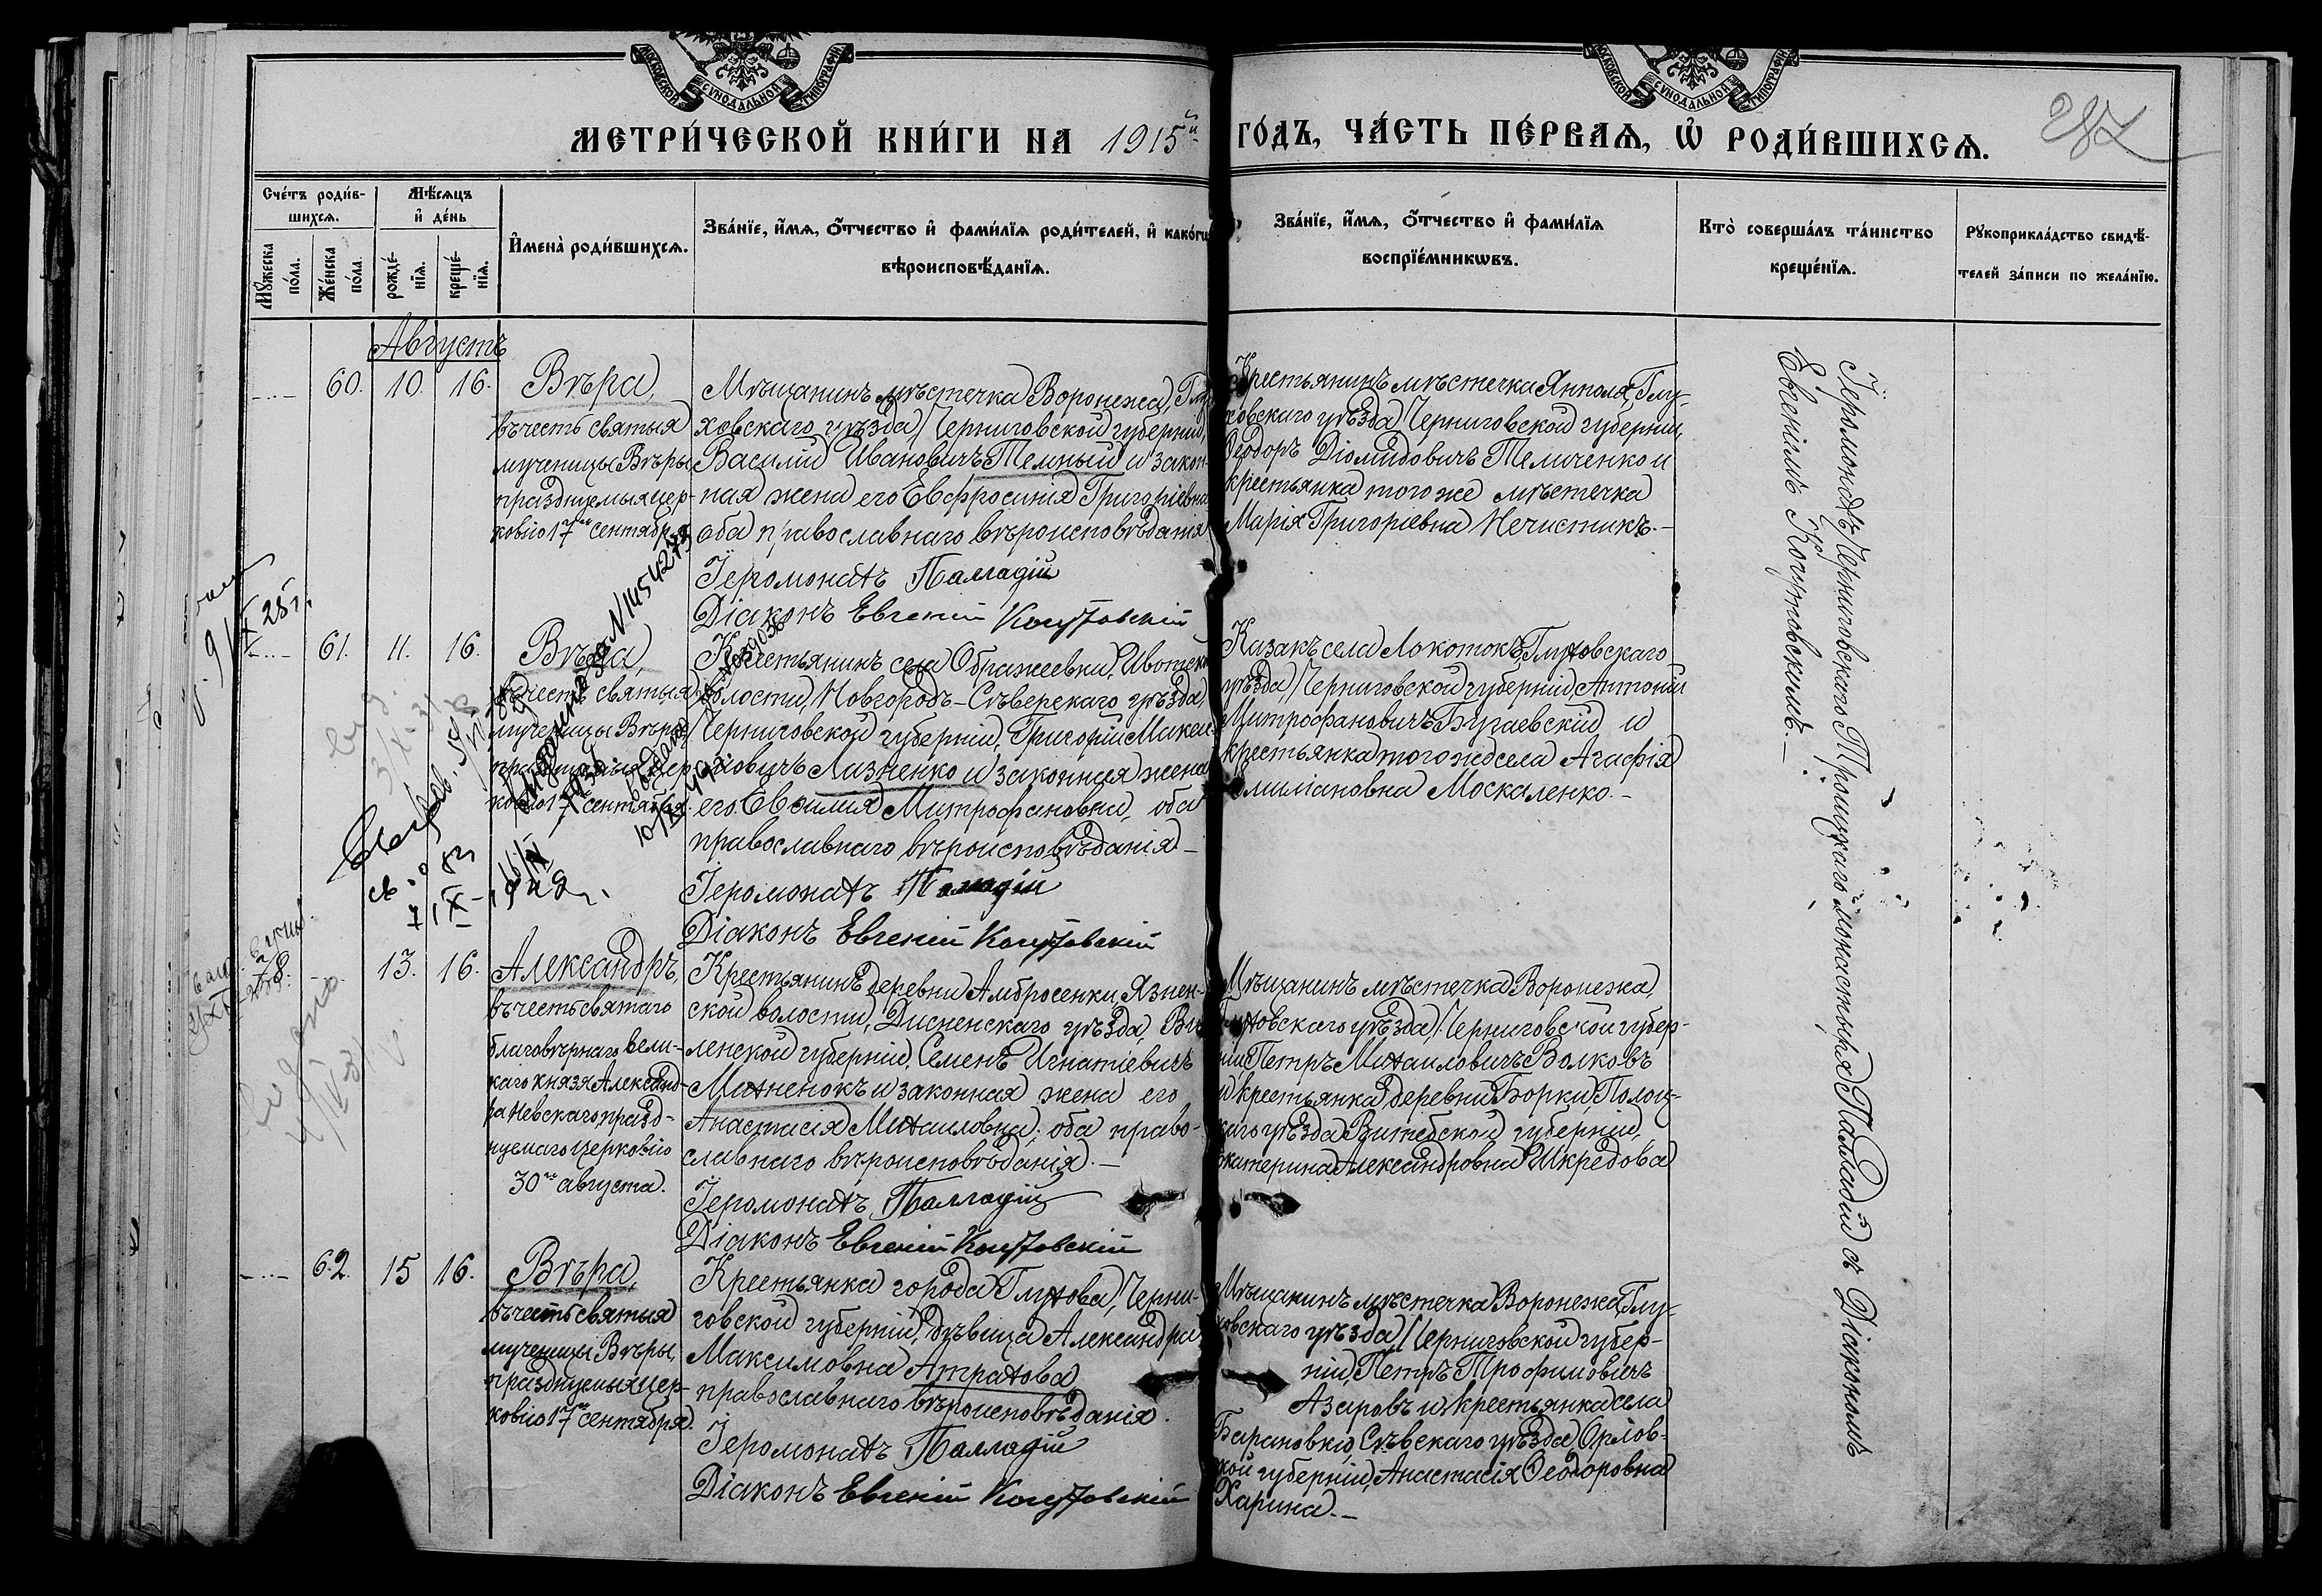 МОСКОВСКОЙ СѴНОДАЛЬНОЙ ТИПОГРАФІИ
МОСКОВСКОЙ СѴНОДАЛЬНОЙ ТИПОГРАФІИ
МЕТРИ́ЧЕСКОЙ КНИ́ГИ НА 1915й ГО́ДЪ, ЧА́СТЬ ПЕ́РВАЯ, Ѡ҆ РОДИ́ВШИХСЯ.
287
Сче́тъ роди́в-
шихсѧ.
Мѣ́сѧцъ
и҆ де́нь
Мꙋ́жеска
по́ла.
Же́нска
по́ла.
рожде́-
нїѧ.
креще́-
нїѧ.
И҆мена̀ роди́вшихсѧ.
Зва́нїе, и҆́мѧ, ѻ҆́тчество и҆ фами́лїѧ роди́телей, и҆ како́гѡ
вѣроисповѣ́данїѧ.
Зва́нїе, и҆́мѧ, ѻ҆́тчество и҆ фами́лїѧ
воспрїе́мникѡвъ.
Кто̀ соверша́лъ та́инство
креще́нїѧ.
Рꙋкоприкла́дство свидѣ́-
телей за́писи по жела́нїю.
Августъ
60. 10. 16.
Вѣра,
въ честь святыя
мученицы Вѣры
празднуемыя цер-
ковію 17го сентября
Мѣщанинъ мѣстечка Воронежа, Глу-
ховскаго уѣзда, Черниговской губерніи,
Василій Ивановичъ Темный и закон-
ная жена его Евфросинія Григоріевна
оба православнаго вѣроисповѣданія
Іеромонахъ Палладій
Діаконъ Евгеній Кочутовскій
Крестьянинъ мѣстечка Янполя, Глу-
ховскаго уѣзда Черниговской губерніи,
Ѳеодоръ Діомидовичъ Темченко и
крестьянка того же мѣстечка
Марія Григоріевна Нечистикъ. –
Іеромонахъ Черниговскаго Троицкаго монастыря Палладій съ Діакономъ
Евгеніемъ Кочутовскимъ. –
61. 11. 16.
Вѣра,
въ честь святыя
мученицы Вѣры
ковію 17го сентября.
Крестьянинъ села Ображеевки, Ивотск
волости, Новгородъ-Сѣверскаго уѣзда,
Черниговской губерніи, Григорій Макси-
мовичъ Лазненко и законная жена
его Евфимия Митрофановна, оба
православнаго вѣроисповѣданія –
Іеромонахъ Палладій
Діаконъ Евгеній Кочутовскій
Казакъ села Локотокъ, Глуховскаго
уѣзда, Черниговской губерніи, Антоній
Митрофановичъ Бугаевскій и
крестьянка того же села Агафія
Емиліановна Москаленко. –
13. 16.
Александръ,
въ честь святаго
благовѣрнаго вели-
каго князя Александ-
ра Невскаго, празд-
нуемаго церковію
30го августа.
Крестьянинъ деревни Амбросенки, Язнен-
ской волости, Дисненскаго уѣзда, Ви-
ленской губерніи, Семенъ Игнатіевичъ
Михненокъ и законная жена его
Анастасія Михаиловна, оба право-
славнаго вѣроисповѣданія. –
Іеромонахъ Палладій
Діаконъ Евгеній Кочутовскій
Мѣщанинъ мѣстечка Воронежа,
Глуховскаго уѣзда, Черниговской губер-
ніи, Петръ Михаиловичъ Волковъ
и крестьянка деревни Борки, Полоц-
каго уѣзда Витебской губерніи,
Екатерина Александровна Шкредова
62. 15 16.
Вѣра,
въ честь святыя
мученицы Вѣры,
празднуемыя цер-
ковію 17го сентября.
Крестьянка города Глухова, Черни-
говской губерніи, дѣвица Александра
Максимовна Атрахова
православнаго вѣроисповѣданія.
Іеромонахъ Палладій
Діаконъ Евгеній Кочутовскій
Мѣщанинъ мѣстечка Воронежа, Глу-
ховскаго уѣзда, Черниговской губер-
ніи, Петръ Трофимовичъ
Азаровъ и крестьянка села
Барановки, Сѣвскаго уѣзда, Орлов-
ской губерніи, Анастасія Ѳеодоровна
Харина. –